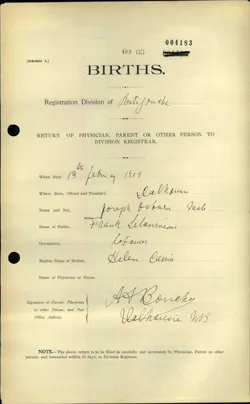 004183
[Schedule A.]
BIRTHS.
Registration Division of Restigouche
RETURN OF PHYSICIAN, PARENT OR OTHER PERSON TO
DIVISION REGISTRAR.
When Born 13th 1909
Where Born, (Street and Number) Dalhousie
Name and Sex, Joseph Osburn Male
Name of Father, Frank
Occupation, Laborer
Maiden Name of Mother, Helen
Name of Physician or Nurse,
Signature of Parent, Physician
or other Person, and Post
Office Address,
Dalhousie NB
NOTE.—The above return is to be filled in carefully and accurately by Physician, Parent or other
person, and forwarded within 30 days, to Division Registrar.